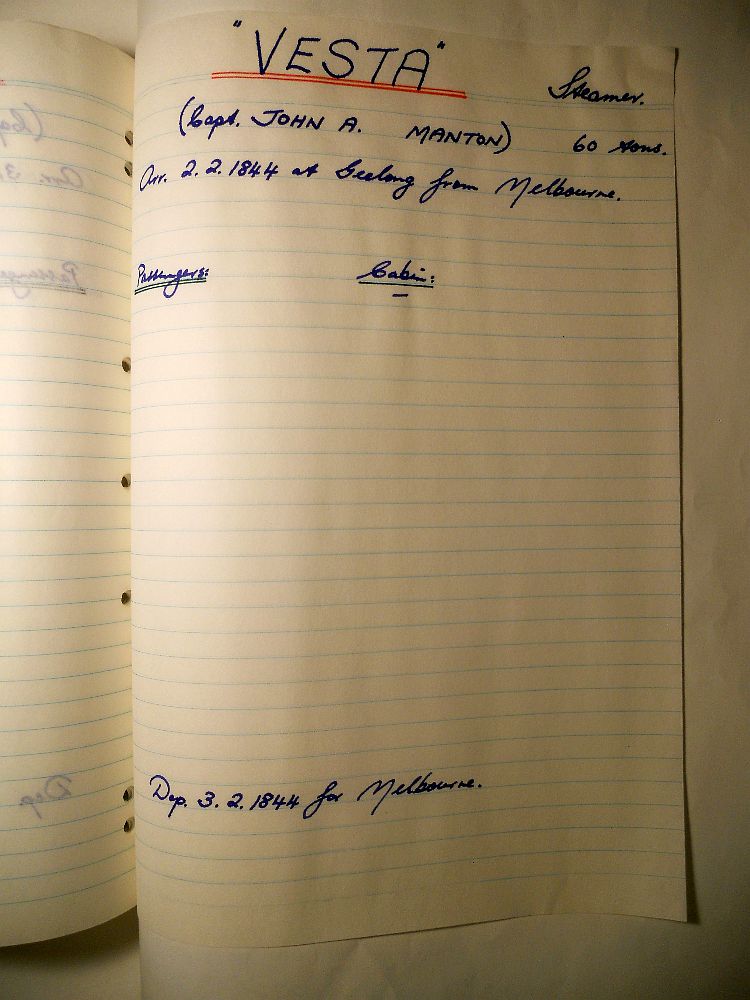 "VESTA"
Steamer.
(Capt. JOHN A. MANTON) 60 tons.
Arr. 2.2.1844 at Geelong from Melbourne.
Passengers: Cabin:
–
Dep. 3.2.1844 for Melbourne.